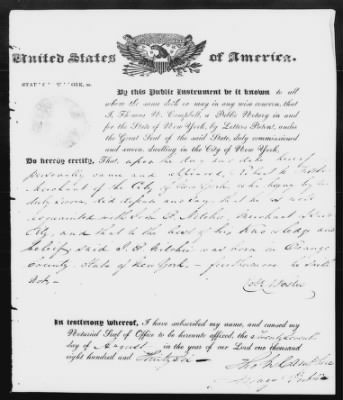 United States of America.
STATE OF NEW YORK, ss.
By this Public Instrument be it known to all
whom the same doth or may in any wise concern, that
I, Thomas W. Campbell, a Public Notary in and
for the State of New York, by Letters Patent, under
the Great Seal of the said State, duly commissioned
and sworn, dwelling in the City of New York.
Do hereby certify, That, upon the day and date hereof
personally came and appeared, Robert
Merchant of the City of New York, who being by me
duly sworn, did depose and say, that he is well
acquainted with B. Merchant of
City, and that to the best of his knowledge and
belief, said was born in Orange
county, State of New York - further
not. -
In testimony whereof, I have subscribed my name, and caused my
Notarial Seal of Office to be hereunto affixed, the
day of August in the year of our Lord one thousand
eight hundred and Thirty